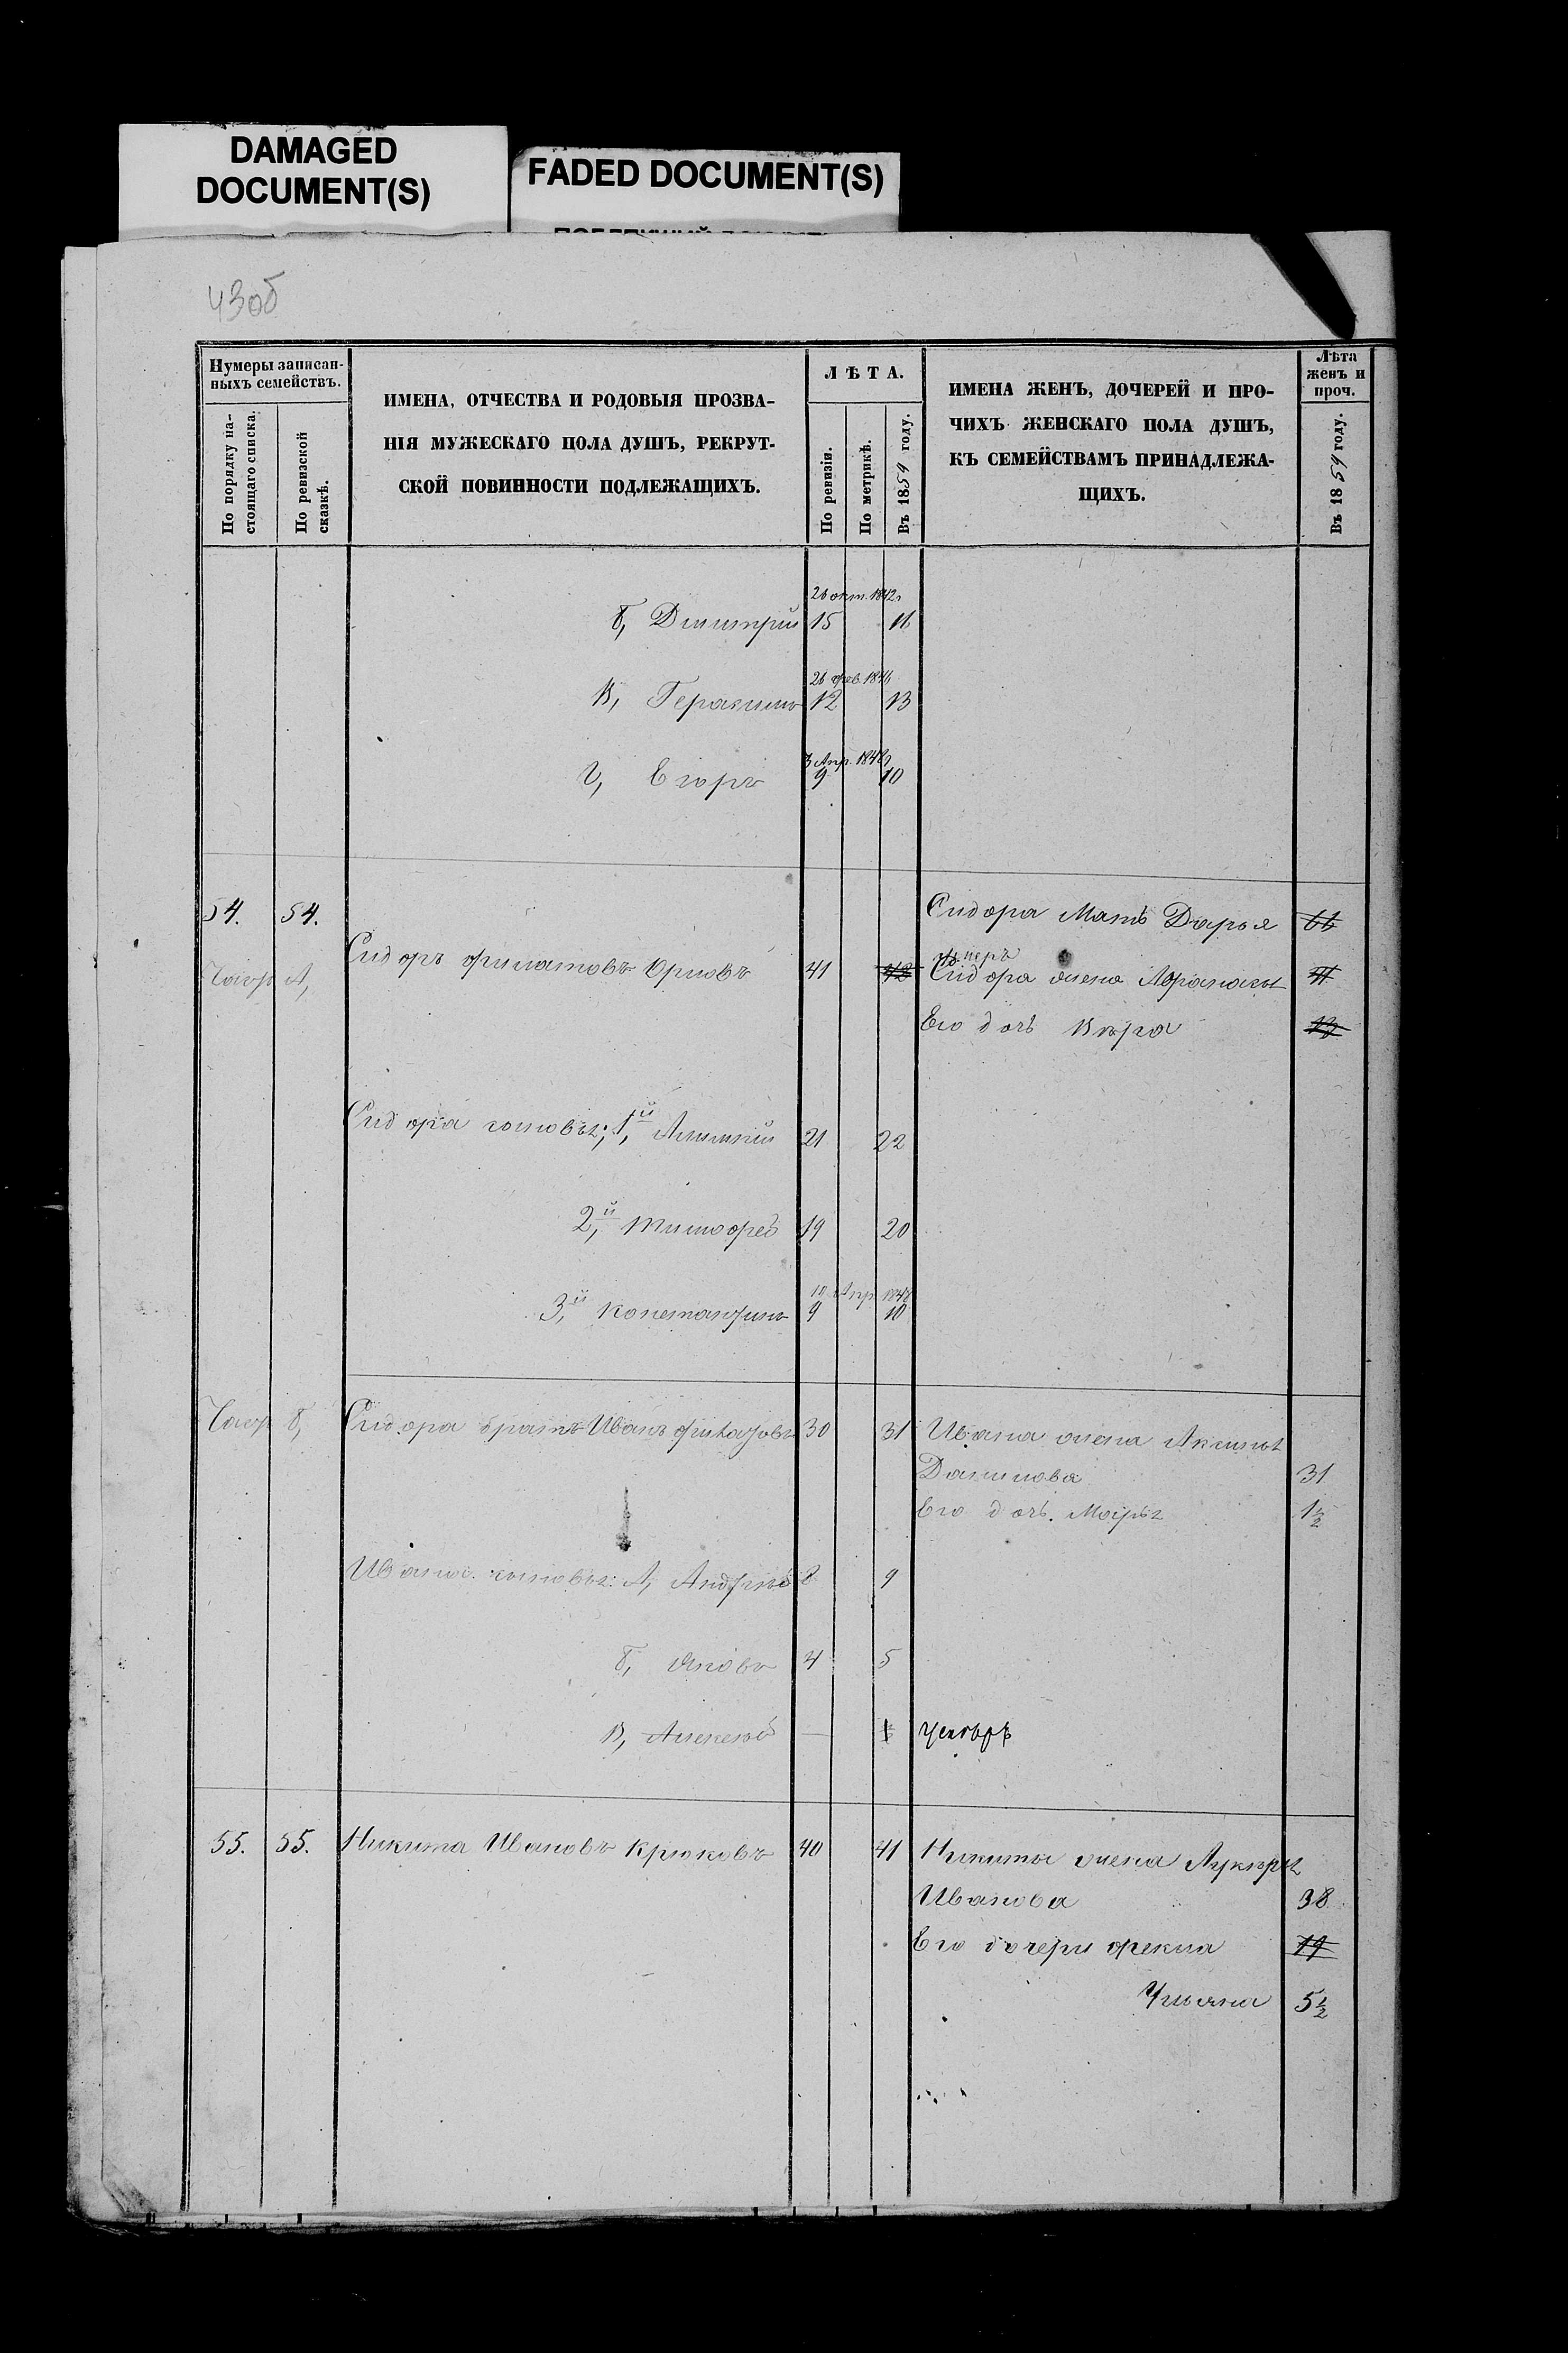 DAMAGED
DOCUMENT(S)
FADED DOCUMENT(S)
43об
Нумеры записан-
ныхъ семействъ.
По порядку на-
стоящаго списка.
По ревизской
сказкѣ.
ИМЕНА, ОТЧЕСТВА И РОДОВЫЯ ПРОЗВА-
НІЯ МУЖЕСКАГО ПОЛА ДУШЪ, РЕКРУТ-
СКОЙ ПОВИННОСТИ ПОДЛЕЖАЩИХЪ.
ЛѢТА.
По ревизіи.
По метрикѣ.
Въ 1859 году.
ИМЕНА ЖЕНЪ, ДОЧЕРЕЙ И ПРО-
ЧИХЪ ЖЕНСКАГО ПОЛА ДУШЪ,
КЪ СЕМЕЙСТВАМЪ ПРИНАДЛЕЖА-
ЩИХЪ.
Лѣта
женъ и
проч.
Въ 1859 году.
26 окт. 1842
Б, Димитрій 15 16
26 фев. 1846
В, Герасимъ 12 13
3 Апр. 1848
Г, Егоръ 9 10
54. 54. Сидора Мать Дарья 66
умеръ
А, Сидоръ Филатовъ Орловъ 41 42 Сидора жена 41
Его дочь Вѣра 13
Сидора сыновья; 1й 21 22
2й Тимофей 19 20
10 Апр 1848
3й Констанфинъ 9 10
Б, Сидора братъ Иванъ 30 31 Ивана жена Аксинья
Данилова 31
Его дочь Марья 1½
Ивана сыновья: А, Андрей 8 9
Б, Яковъ 4 5
В, Алексей — 1
55. 55. Никита Ивановъ Крюковъ 40 41 Никиты жена Лукерья
Иванова 38
Его дочери Фекла 19
Ульяна 5½